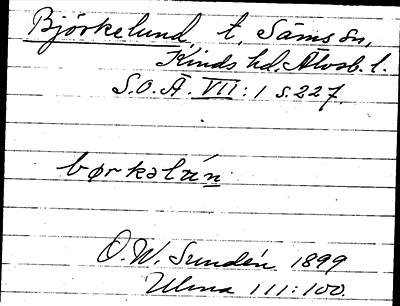 Björkelund t. Säms sn,
Kinds hd. Älvsb. l.
S.O.Ä. VII: 1 s. 227.
børkəlun
O.W. Sundén 1899
Ulma 111:100.